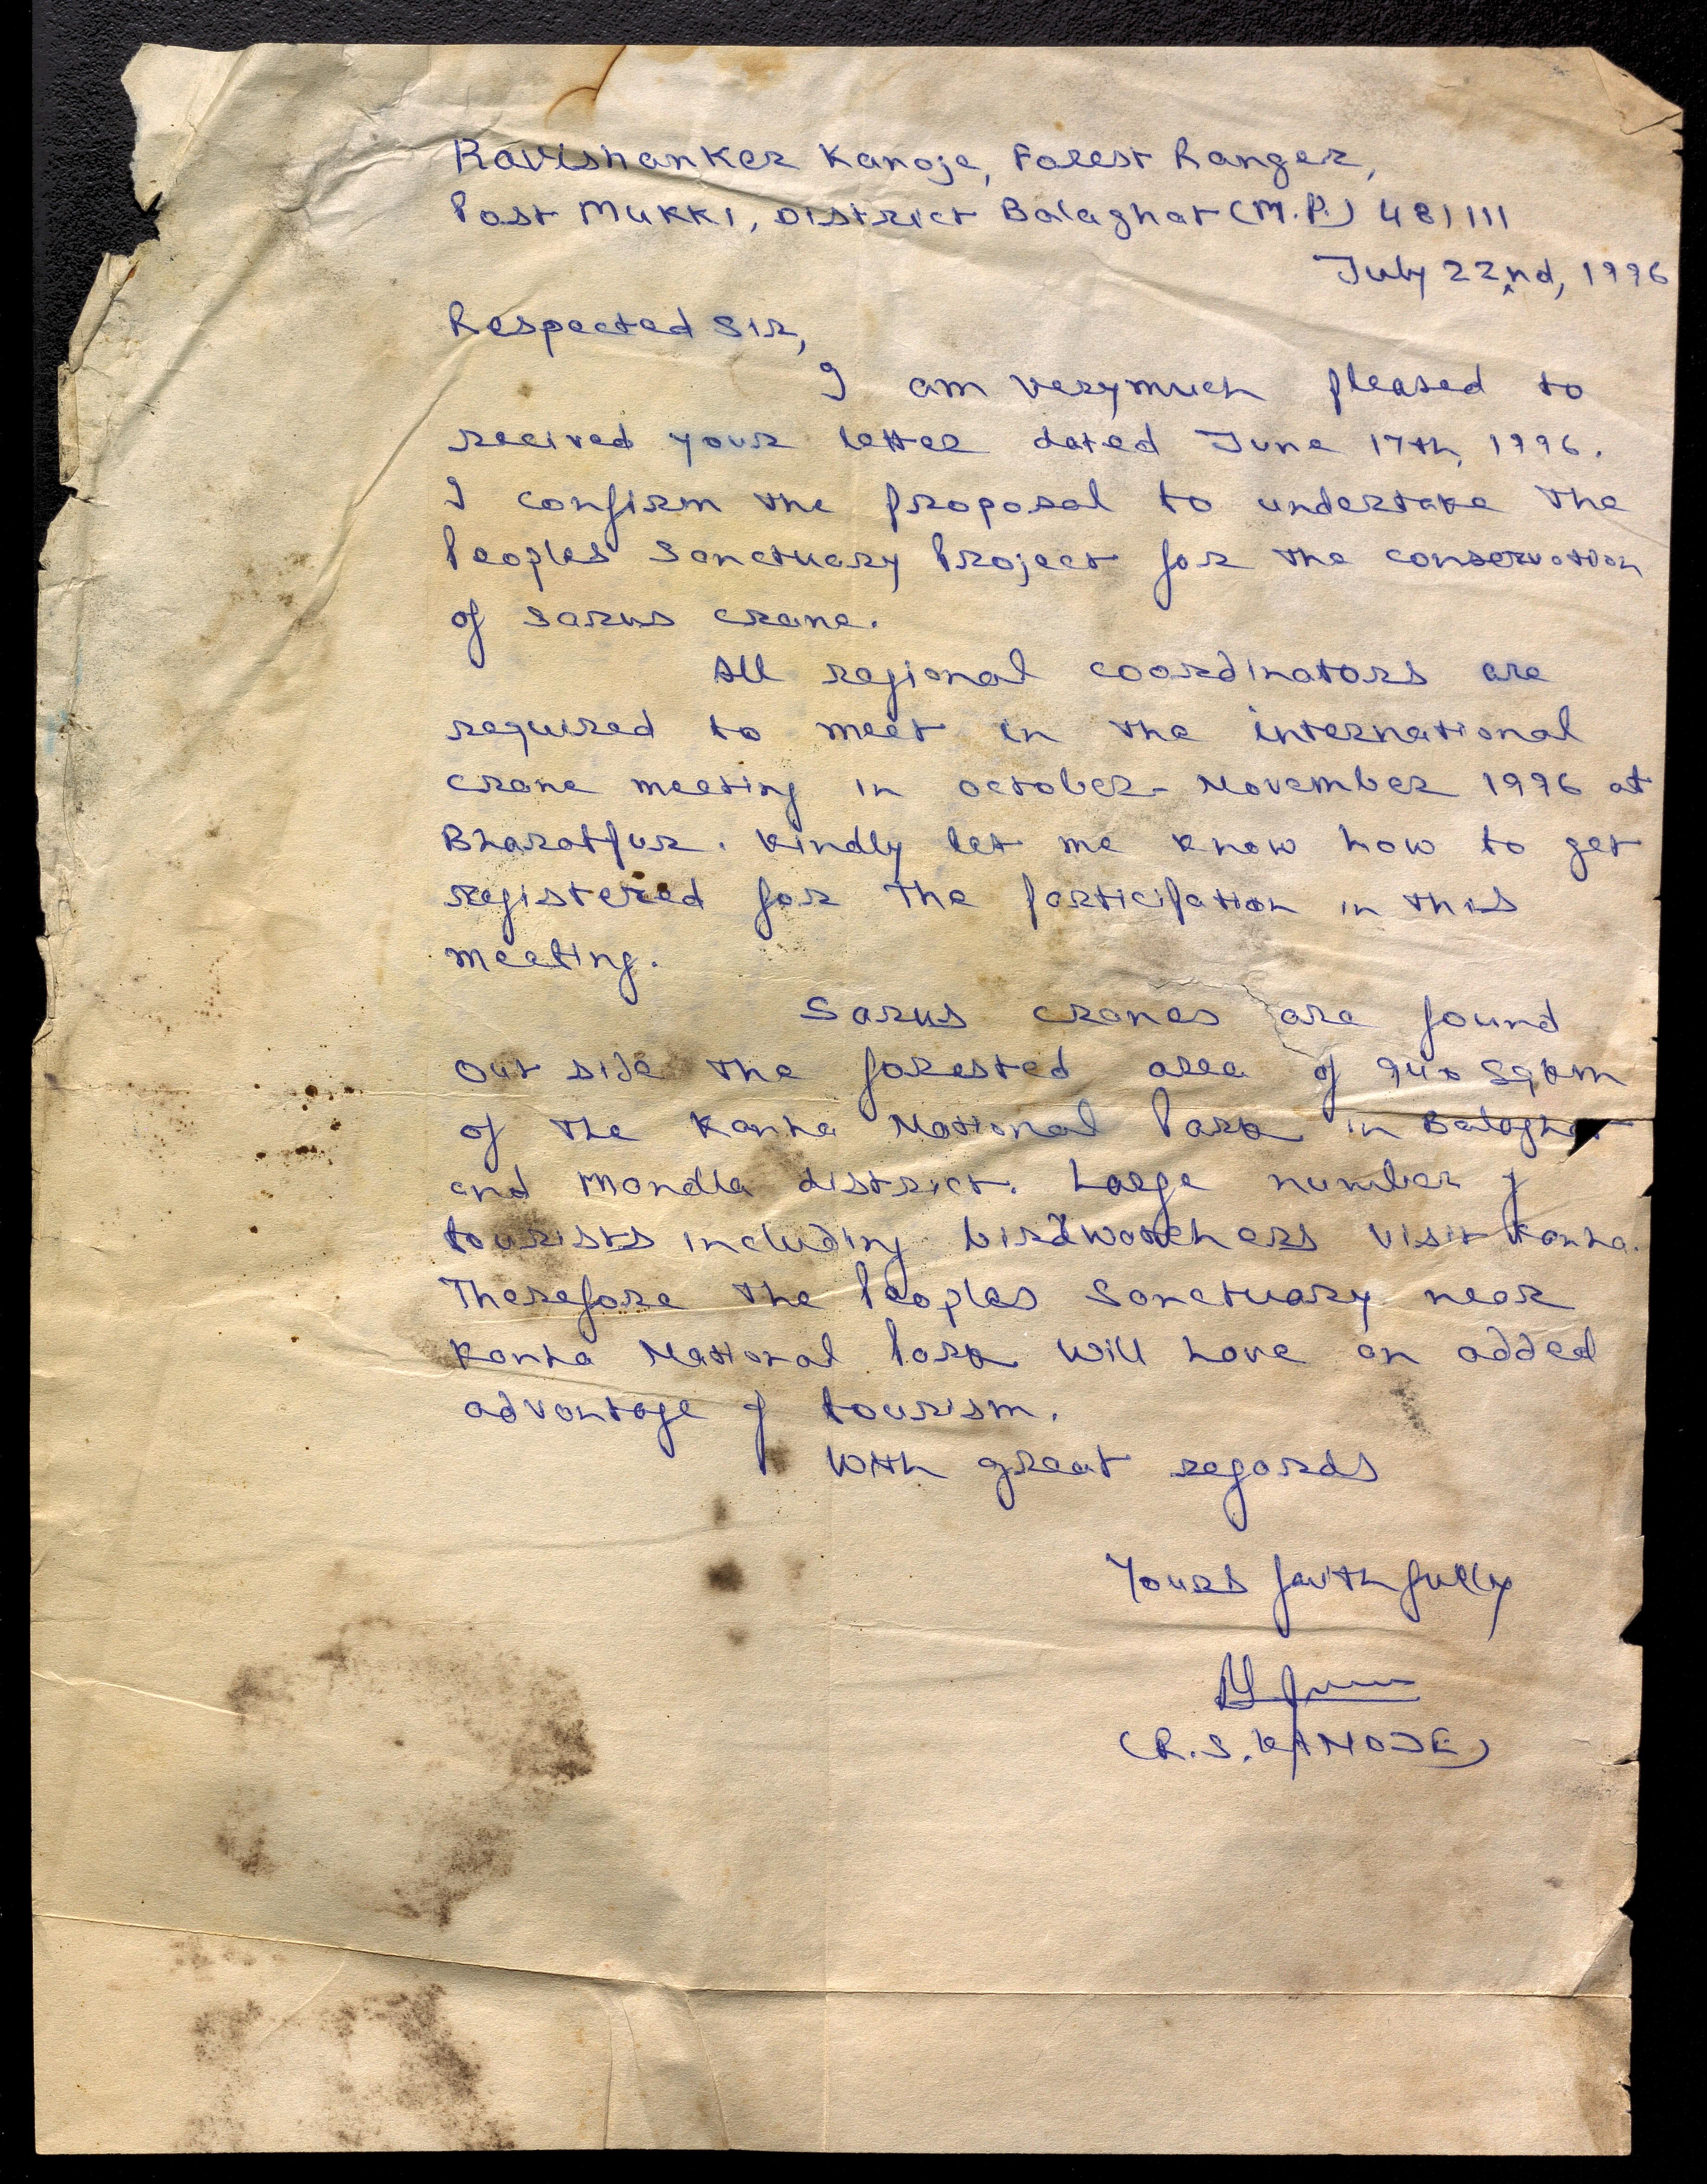 Ravishanker Kanoje, Forest Ranger,
Post Mukki, District Balaghat (M.P.) 481111
July 22nd, 1996
Respected Sir,
I am verymuch pleased to
recived your letter dated June 17th, 1996.
I confirm the proposal to undertake the
Peoples Sanctuary Project for the conservation
of Sarus crane.
All regional coordinators are
required to meet in the international
crane meeting in october - November 1996 at
Bharatpur. Kindly let me know how to get
registered for the participation in this
meeting.
Sarus cranes are found
out side the forested area of 940 Sqkm
of the Kanha National Park in Balaghat
and Mandla district. Large number of
tourists including birdwatchers visit Kanha.
Therefore the Peoples Sanctuary near
Kanha National Park will have an added
advantage of tourism.
With great regards
Yours faithfully
(R.S. KANOJE)